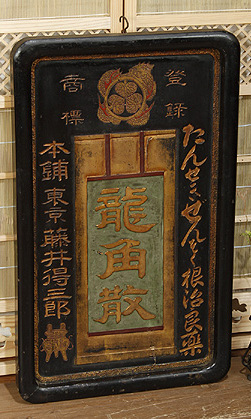 登録
商標
たんせきぜんそく根治良薬
龍角散
本舗東京藤井得三郎